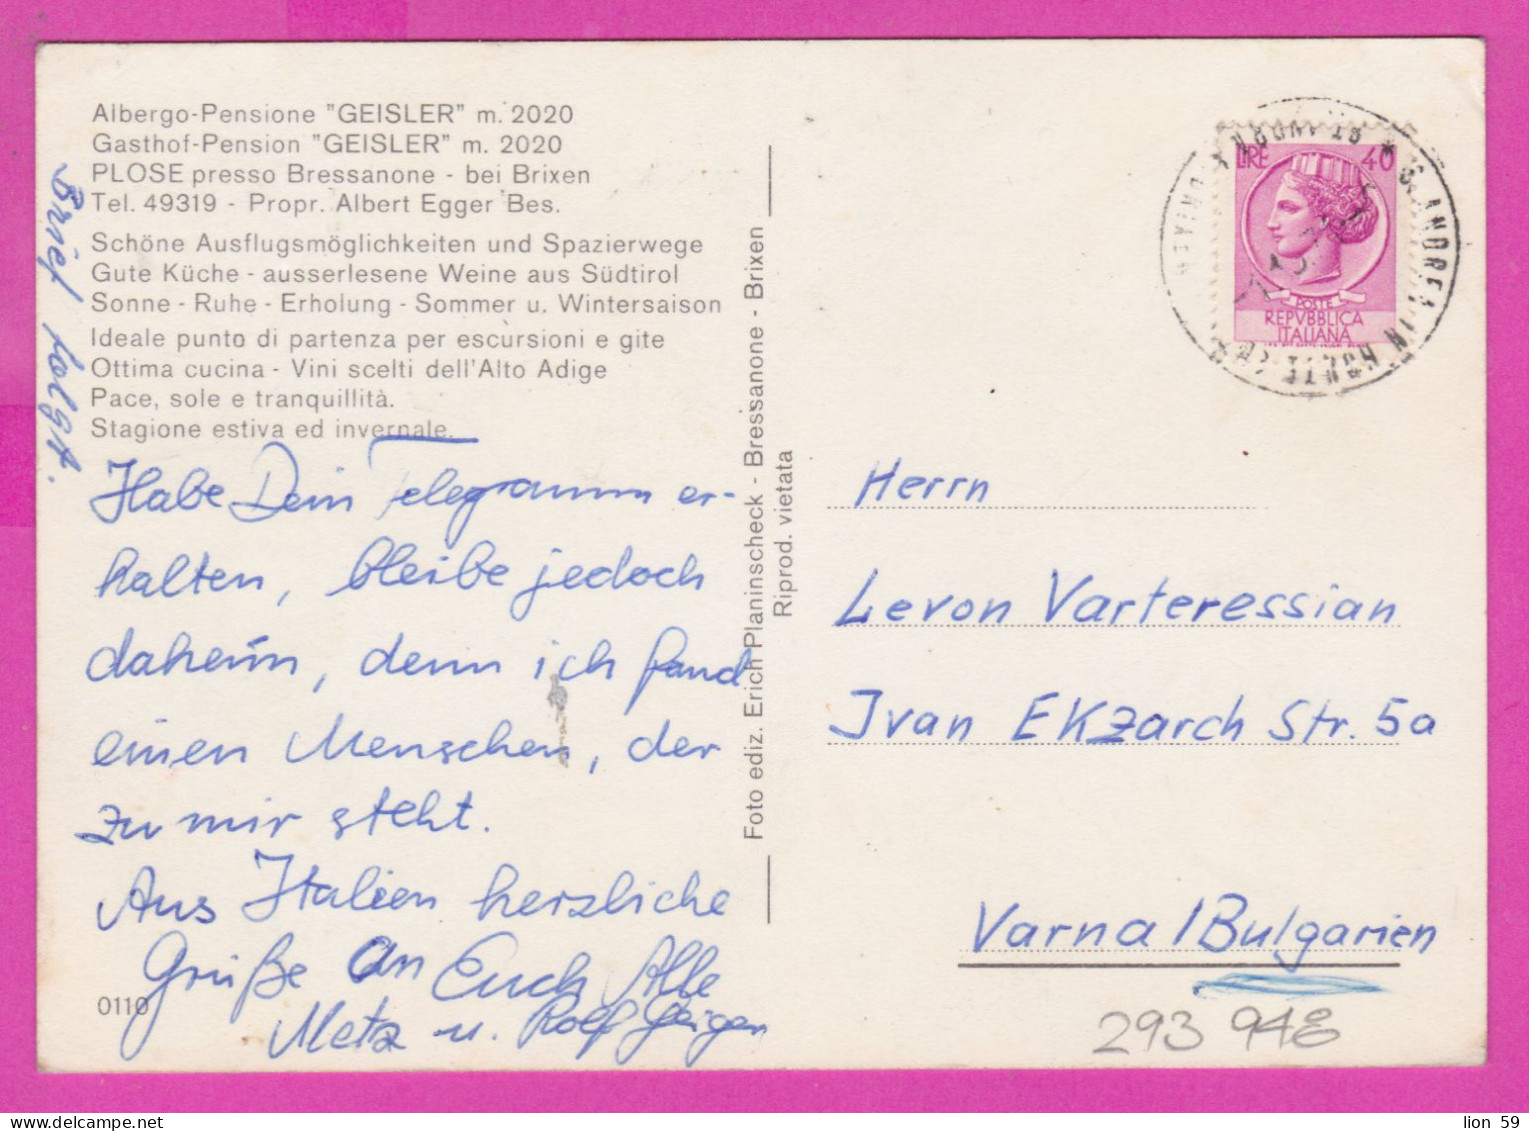 Albergo-Pensione "GEISLER" m. 2020
Gasthof-Pension "GEISLER" m. 2020
PLOSE presso Bressanone - bei Brixen
Tel. 49319 - Propr. Albert Egger Bes.
Schöne Ausflugsmöglichkeiten und Spazierwege
Gute Küche - ausserlesene Weine aus Südtirol
Sonne - Ruhe - Erholung - Sommer u. Wintersaison
Ideale punto di partenza per escursioni e gite
Ottima cucina - Vini scelti dell'Alto Adige
Pace, sole e tranquillità.
Stagione estiva ed invernale.
Brief folgt.
Habe Dein Telegramm er-
halten, bleibe jedoch
daheim, denn ich fand
einen Menschen, der
zu mir steht.
Aus Italien herzliche
Grüße an Euch Alle
Metz u. Rolf Geiger
0110
Foto ediz. Erich Planinscheck - Bressanone - Brixen
Riprod. vietata
LIRE 40
POSTE
REPVBBLICA
ITALIANA
S. ANDREA IN MONTE
Herrn
Levon Varteressian
Ivan EKzarch Str. 5a
Varna / Bulgarien
293 948
lion 59